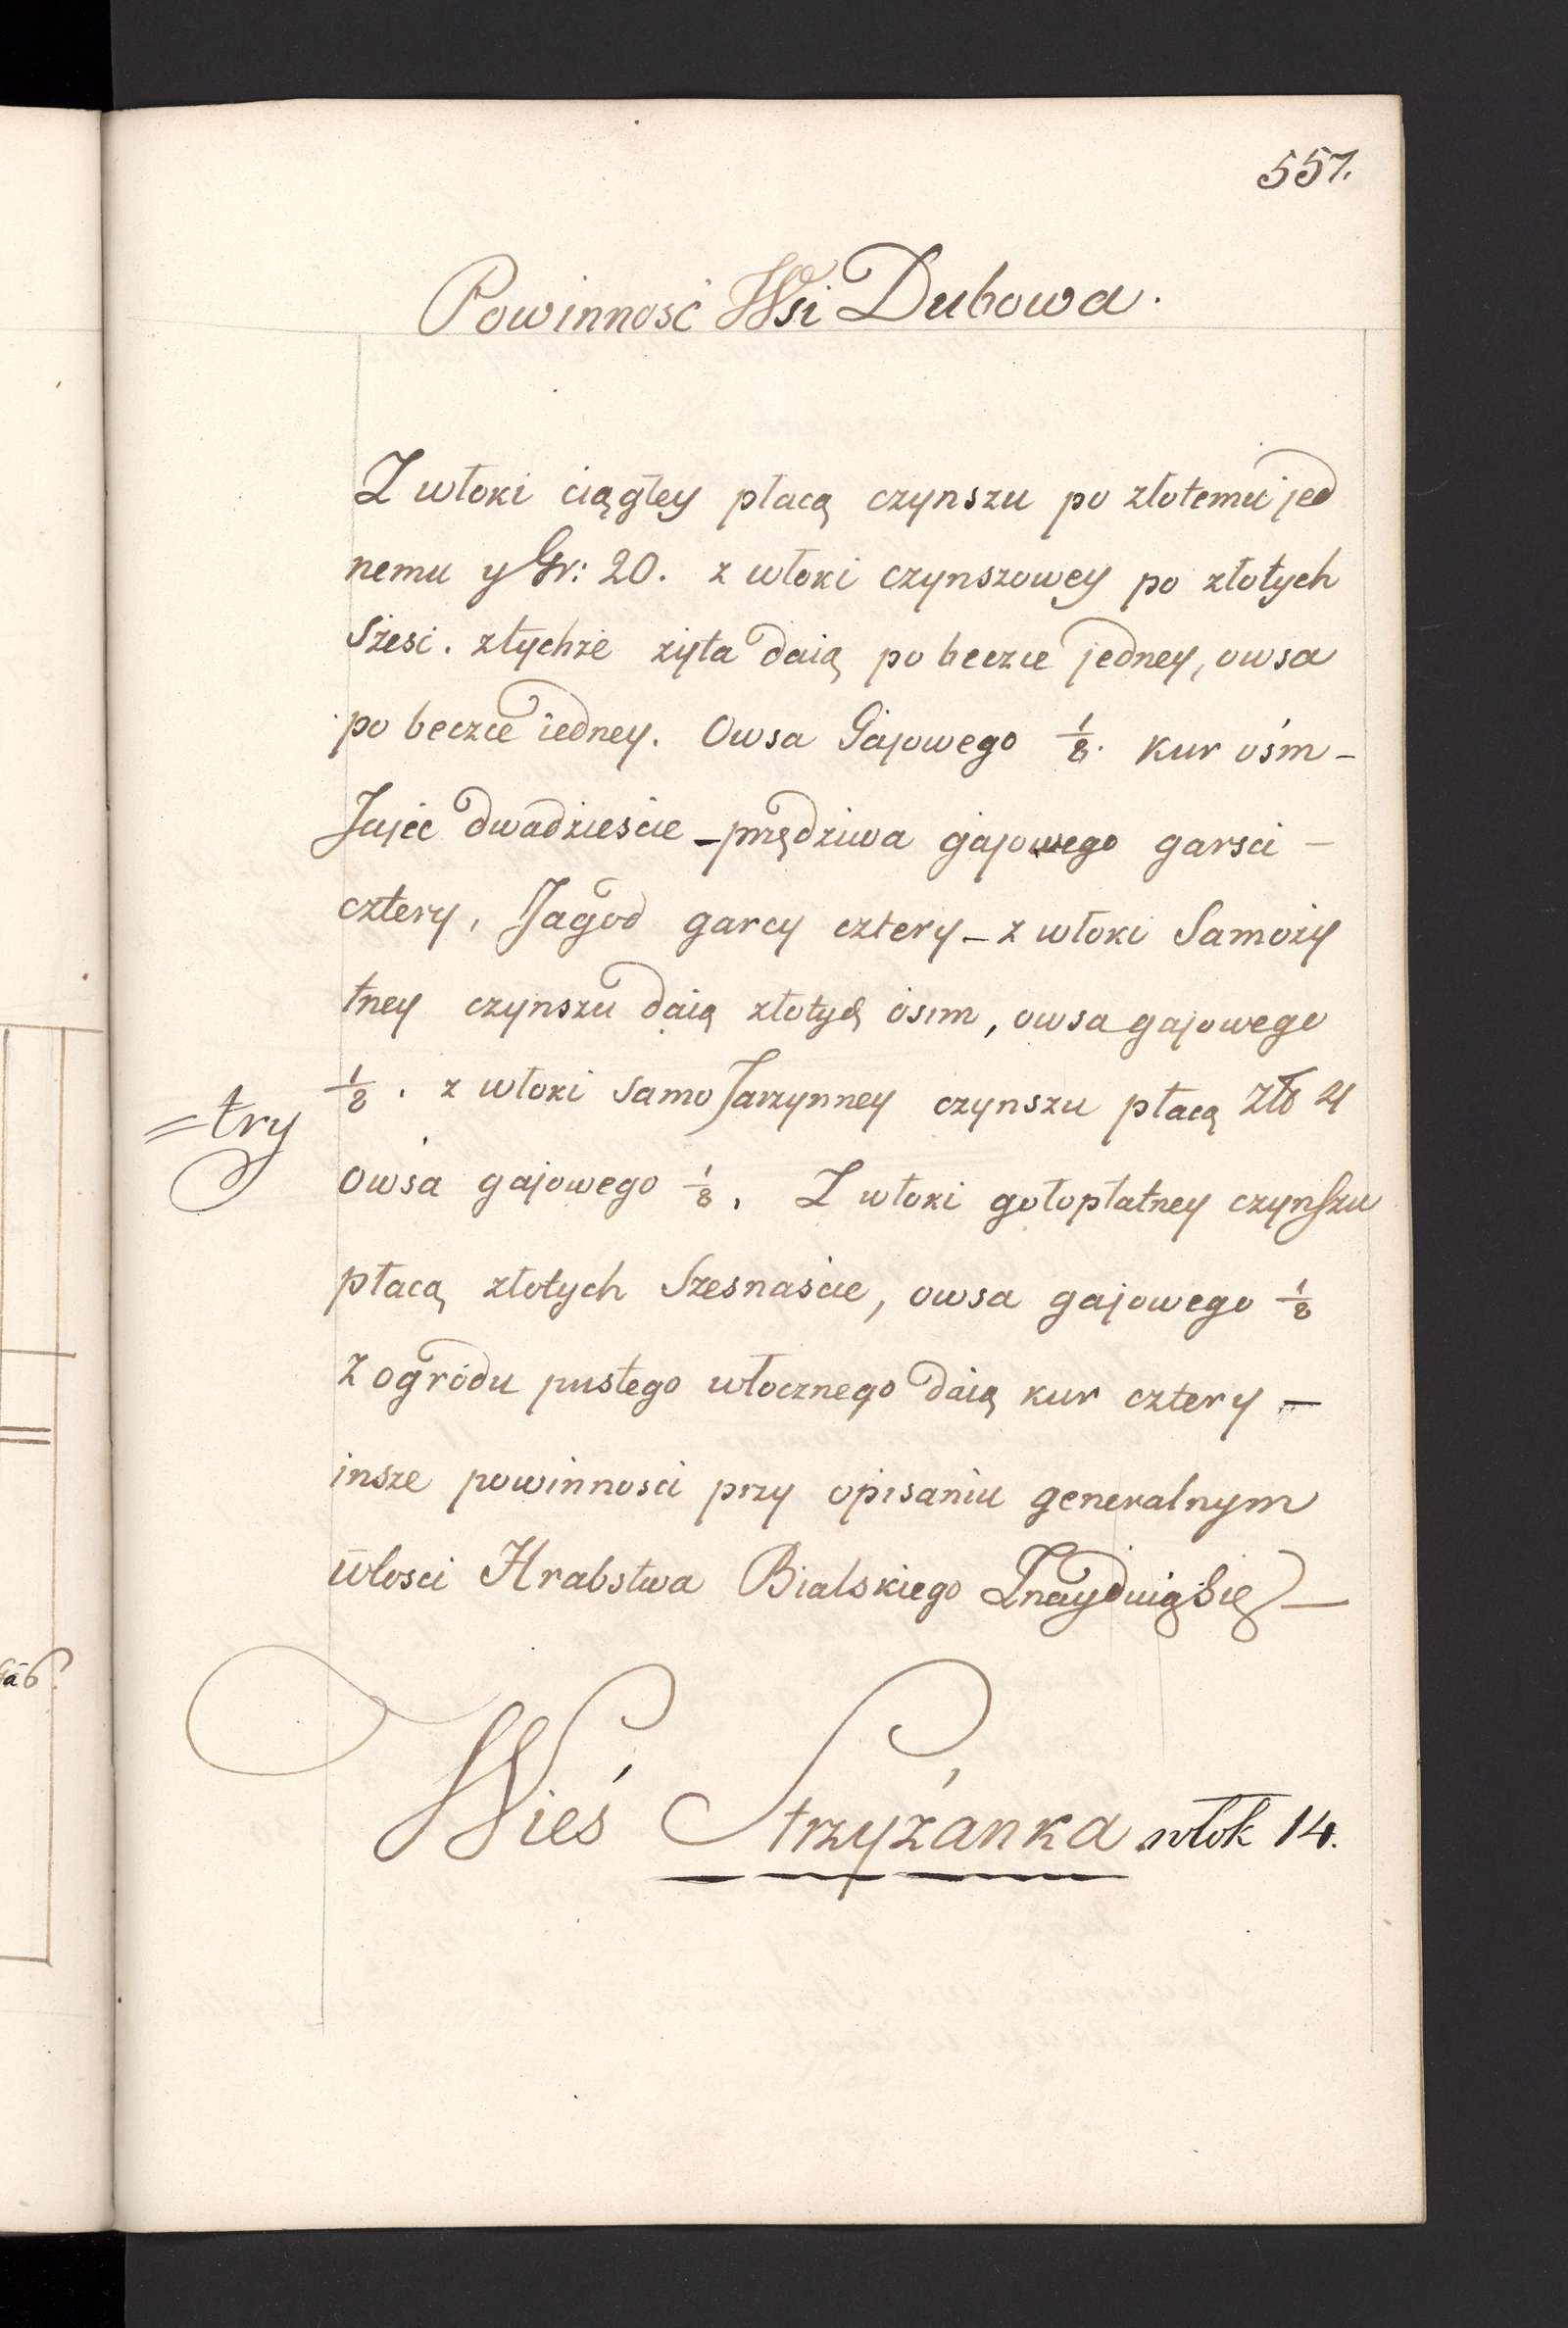 557.
Powinność Wsi Dubowa.
Z włoki ciągłey płacą czynszu po złotemu jed
nemu y Gr: 20. z włoki czynszowey po złotych
Sześć. z tychże żyta daią po beczce jedney, owsa
po beczce iedney. Owsa Gajowego 1/8. Kur ośm –
Jajec dwadzieście – przędziwa gajowego garsci –
cztery, Jagod garcy cztery – z włoki Samoży
tney czynszu daią złotych osim, owsa gajowego
1/8. z włoki samo Jarzynney czynszu płacą Zło 4
=try
owsa gajowego 1/8. Z włoki gołopłatney czynszu
płacą złotych Szesnaście, owsa gajowego 1/8
z ogrodu pustego włocznego daią kur cztery –
insze powinnosci przy opisaniu generalnym
włosci Hrabstwa Bialskiego Znayduią Się –
Wieś Strzyżanka włok 14.